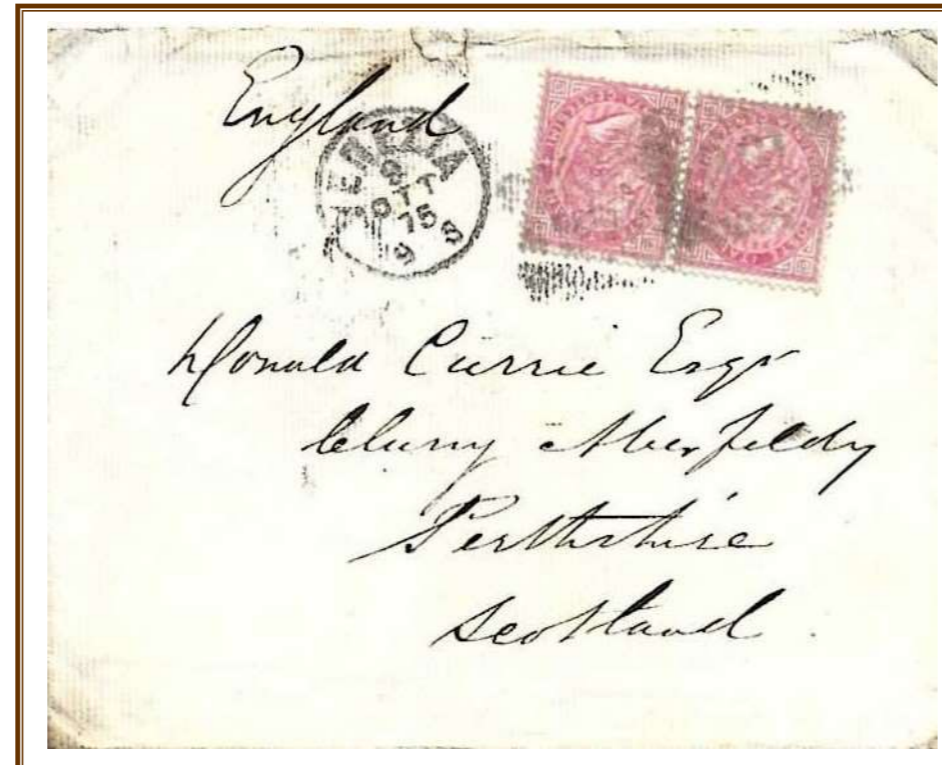 England
VENEZIA
OTT
75
Donald Currie Esqr
Cluny Aberfeldy
Perthshire
Scotland.